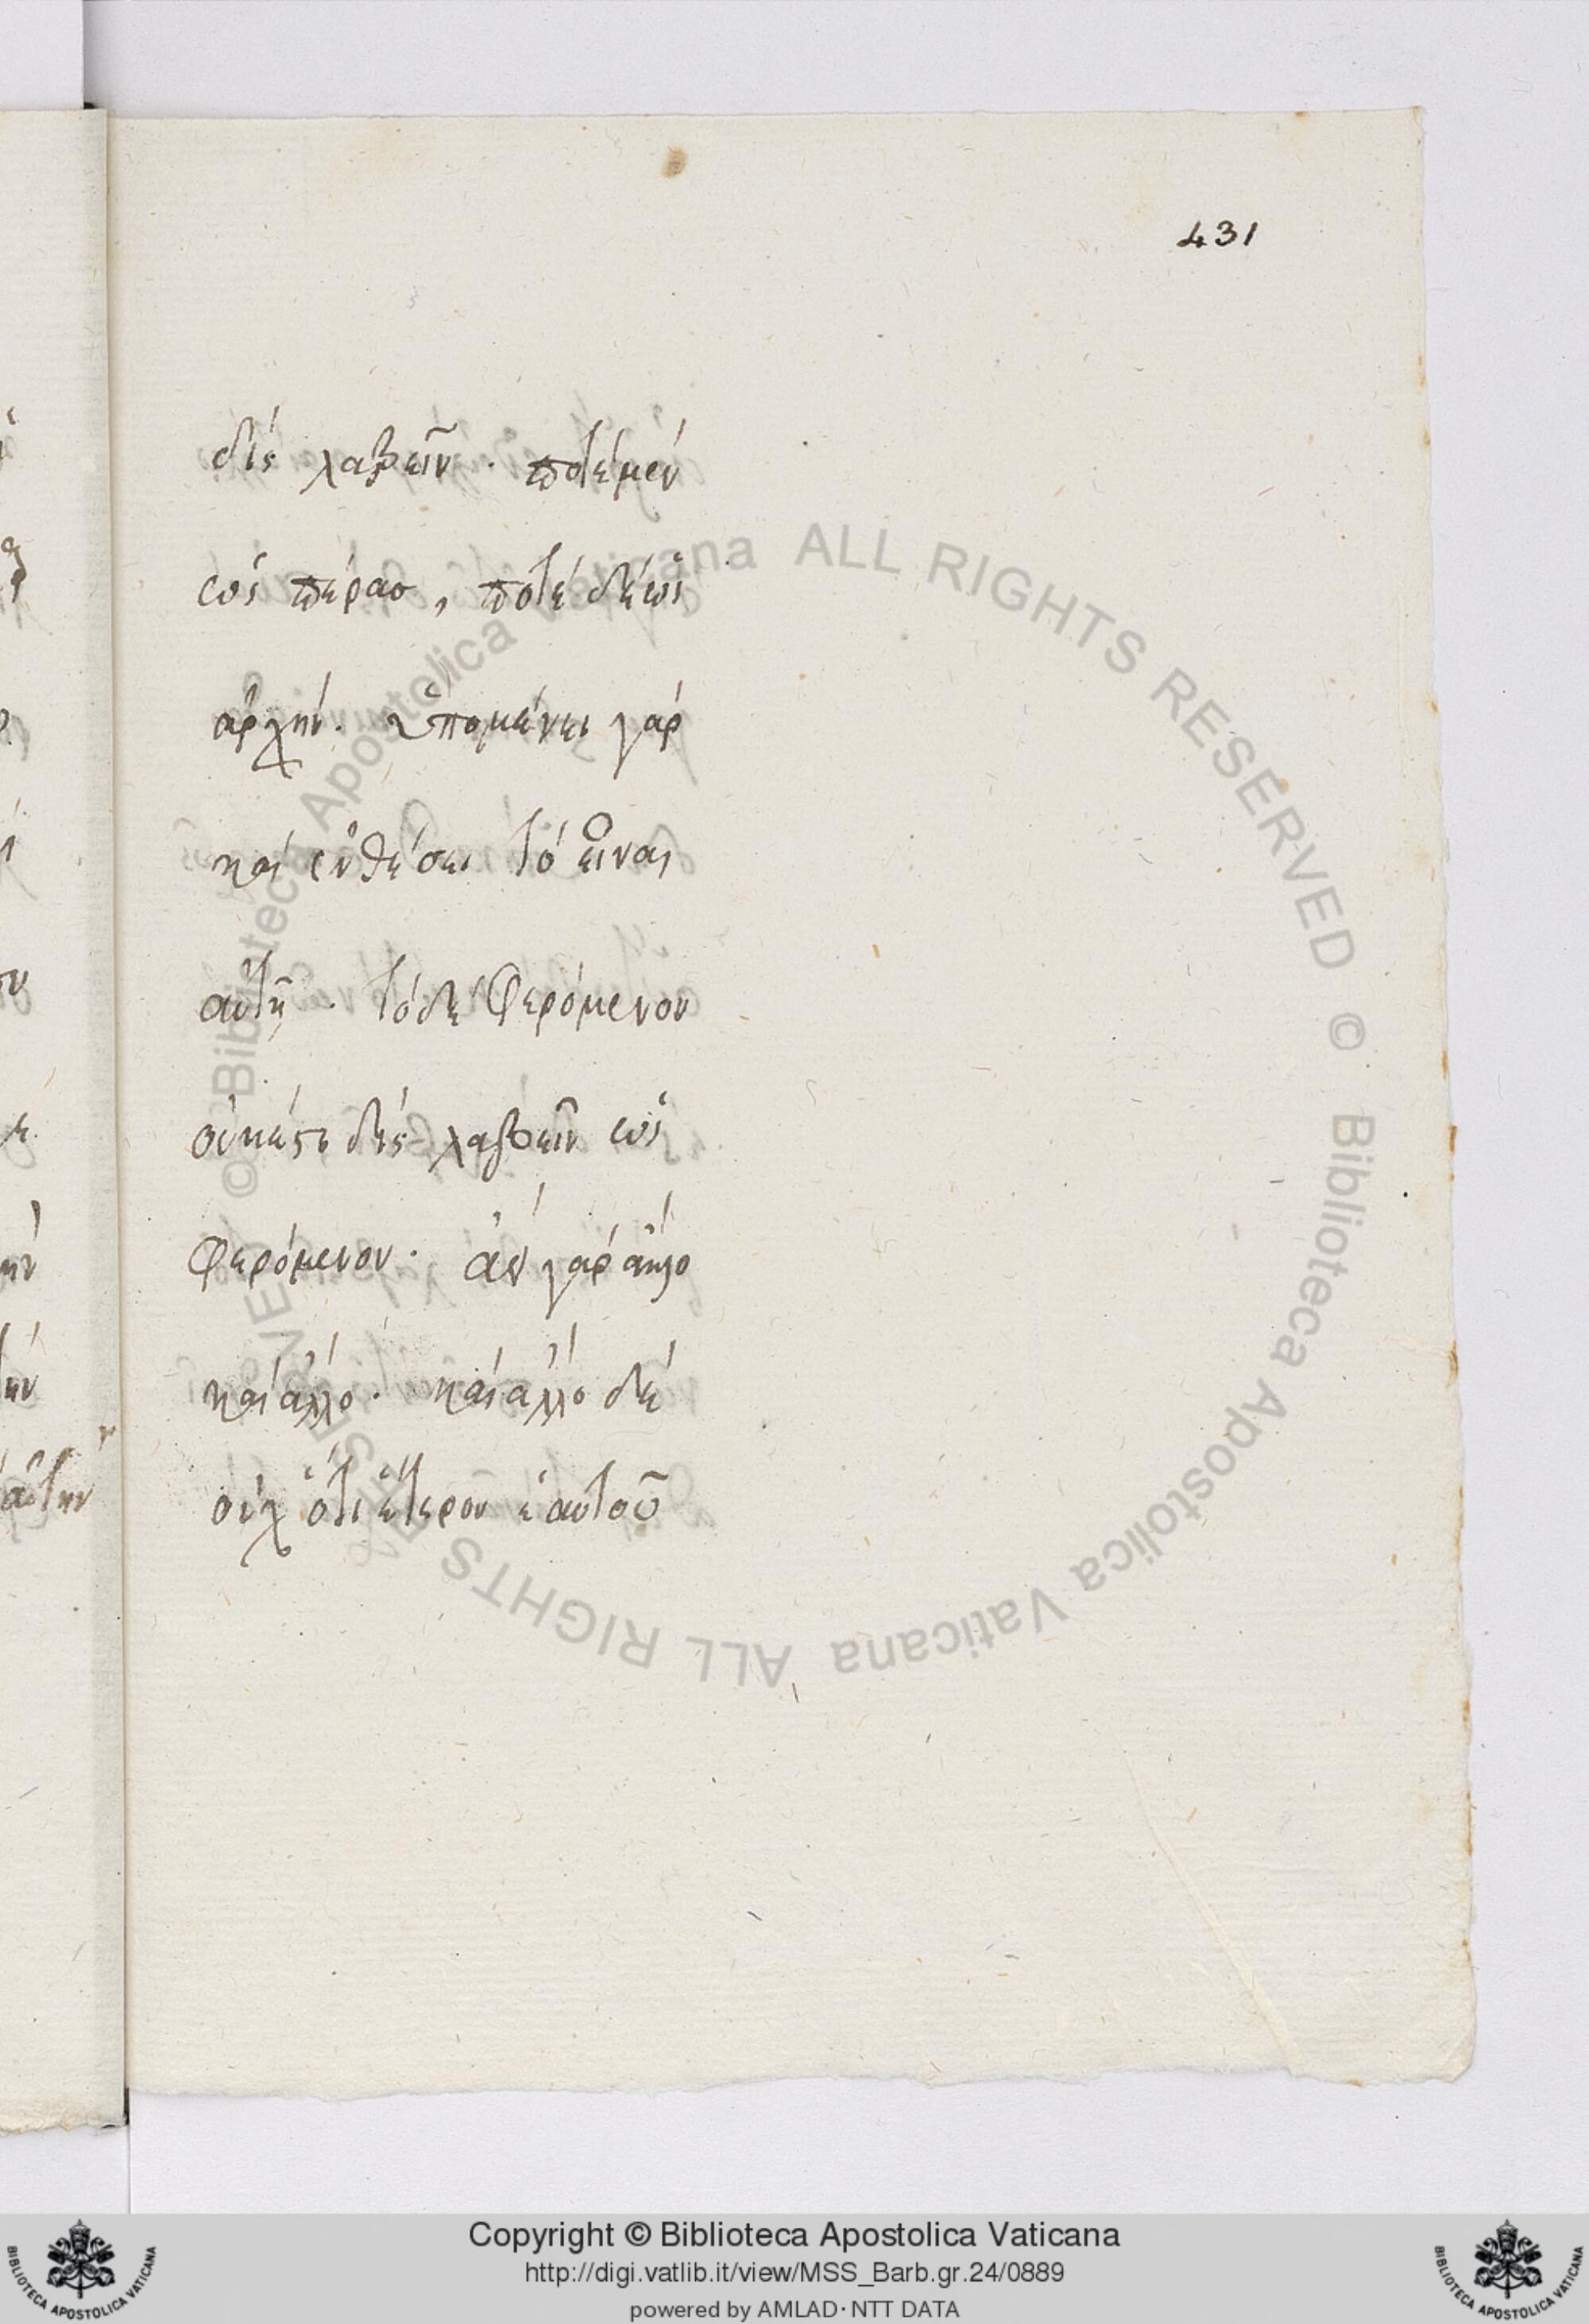 431
δὶς λαβεῖν · ποτὲ μὲν
ὡς πέρασ, ποτὲ δὲ ὡς
ἀρχήν. ὑπομένει γὰρ
καὶ ἐν θέσει τὸ εἶναι
αὐτῇ · τὸ δὲ φερόμενον
οὐκ ἔστι δὶς λαβεῖν ὡς
φερόμενον · ἀεὶ γὰρ ἄλλο
καὶ ἄλλο · καὶ ἄλλο δὲ
οὐχ ὅτι ἕτερον ἑαυτοῦ
© Biblioteca Apostolica Vaticana ALL RIGHTS RESERVED © Biblioteca Apostolica Vaticana ALL RIGHTS RESERVED
Copyright © Biblioteca Apostolica Vaticana
http://digi.vatlib.it/view/MSS_Barb.gr.24/0889
powered by AMLAD · NTT DATA
BIBLIOTECA APOSTOLICA VATICANA
BIBLIOTECA APOSTOLICA VATICANA